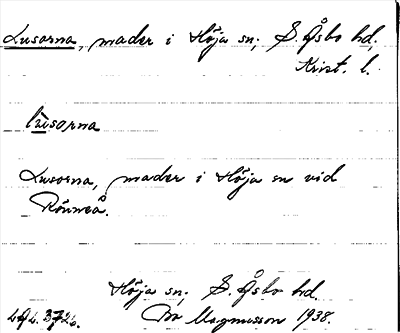 Lusorna, mader i Höja sn, S. Åsbo hd,
Krist. l.
sorna
Lusorna, mader i Höja sn vid
Rönneå.
Höja sn, S. Åsbo hd.
Magnusson 1938.